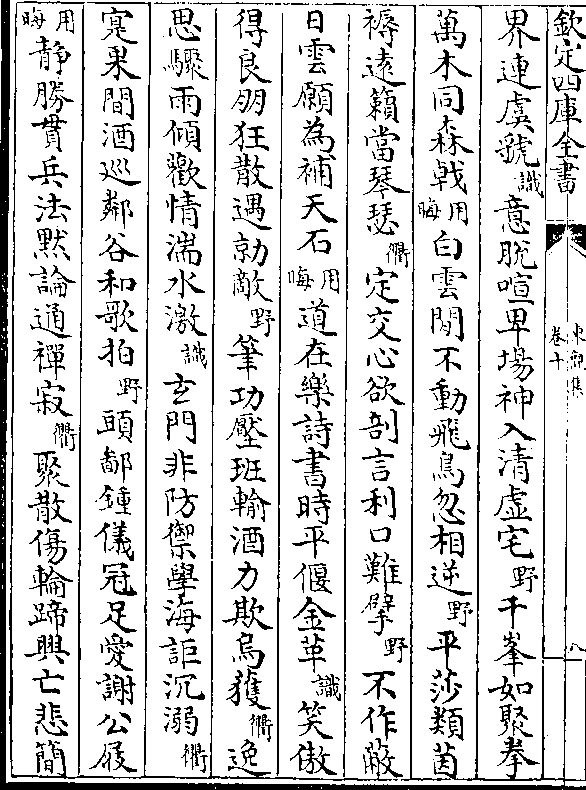 欽定四庫全書
東觀集
卷十
八
界連虞虢識意脫喧卑場神入清虚宅野千峯如聚拳
萬木同森戟用晦白雲閒不動飛鳥忽相逆野平莎類茵
褥遠籟當琴瑟衢定交心欲剖言利口難擘野不作蔽
日雲願為補天石用晦道在樂詩書時平偃金革識笑傲
得良朋狂散遇勍敵野筆功壓班輸酒力欺烏獲衢逸
思驟雨傾歡情湍水激識玄門非防禦學海詎沉溺衢
寔果間酒巡鄰谷和歌拍野頭鄙鍾儀冠足愛謝公屐
用晦静勝貫兵法默論通禪寂衢聚散傷輪蹄興亡悲簡